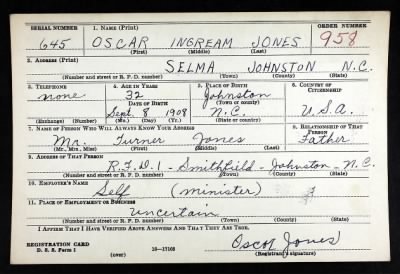 SERIAL NUMBER 1. NAME (Print) ORDER NUMBER
645 OSCAR INGREAM JONES 958
(First) (Middle) (Last)
2. ADDRESS (Print)
SELMA JOHNSTON N.C.
(Number and street or R. F. D. number) (Town) (County) (State)
3. TELEPHONE 4. AGE IN YEARS 5. PLACE OF BIRTH 6. COUNTRY OF CITIZENSHIP
none 32 Johnston
DATE OF BIRTH (Town or county)
Sept. 8 1908 N.C. U.S.A.
(Exchange) (Number) (Mo.) (Day) (Yr.) (State or country)
7. NAME OF PERSON WHO WILL ALWAYS KNOW YOUR ADDRESS 8. RELATIONSHIP OF THAT PERSON
Mr. Turner Jones Father
(Mr., Mrs., Miss) (First) (Middle) (Last)
9. ADDRESS OF THAT PERSON
R.F.D.1 - Smithfield - Johnston - N.C.
(Number and street or R. F. D. number) (Town) (County) (State)
10. EMPLOYER'S NAME
Self (minister)
11. PLACE OF EMPLOYMENT OR BUSINESS
Uncertain
(Number and street or R. F. D. number) (Town) (County) (State)
I AFFIRM THAT I HAVE VERIFIED ABOVE ANSWERS AND THAT THEY ARE TRUE.
REGISTRATION CARD
D. S. S. Form 1 (over) 16—17105 Oscar Jones
(Registrant's signature)